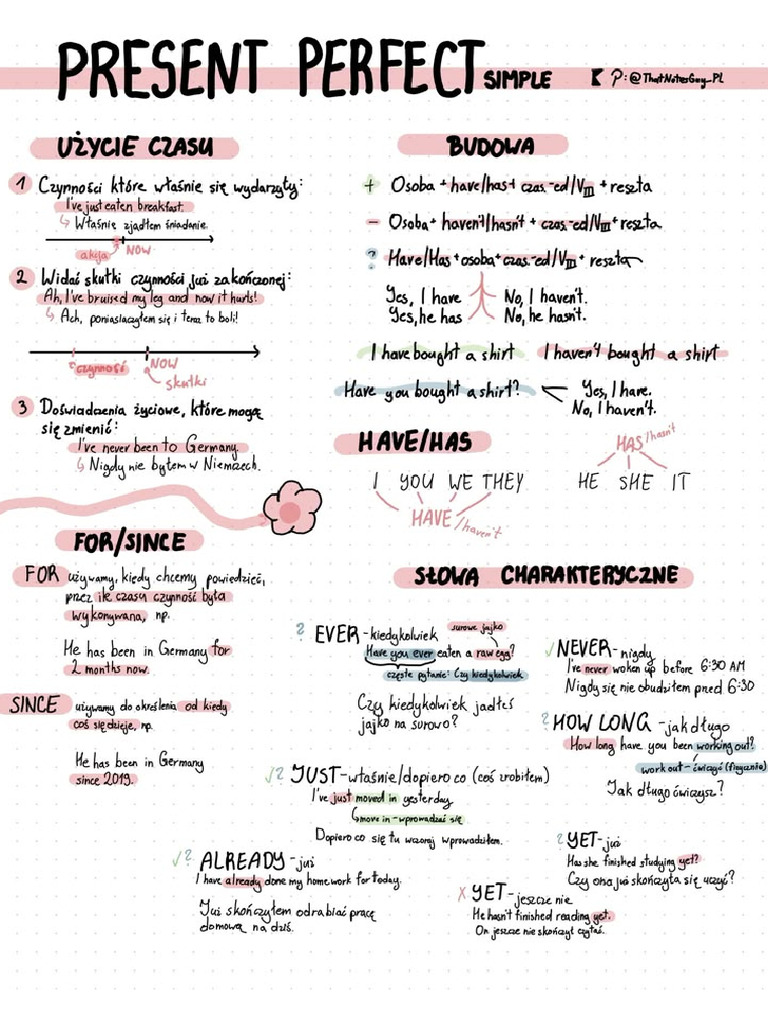 PRESENT PERFECT SIMPLE
: @ThatNotesGuy_PL
UŻYCIE CZASU
1 Czynności które właśnie się wydarzyły:
I've just eaten breakfast.
↳ Właśnie zjadłem śniadanie.
akcja NOW
2 Widać skutki czynności już zakończonej:
Ah, I've bruised my leg and now it hurts!
↳ Ach, poniasiaczyłem się i teraz to boli!
czynność NOW
skutki
3 Doświadczenia życiowe, które mogą
się zmienić:
I've never been to Germany.
↳ Nigdy nie byłem w Niemczech.
FOR/SINCE
FOR używamy, kiedy chcemy powiedzieć,
przez ile czasu czynność była
wykonywana, np.
He has been in Germany for
2 months now.
SINCE używamy do określenia od kiedy
coś się dzieje, np.
He has been in Germany
since 2019.
BUDOWA
+ Osoba + have/has + czas. -ed/VIII + reszta
- Osoba + haven't/hasn't + czas. -ed/VIII + reszta
? Have/Has + osoba + czas. -ed/VIII + reszta
Yes, I have No, I haven't.
Yes, he has No, he hasn't.
I have bought a shirt I haven't bought a shirt
Have you bought a shirt? Yes, I have.
No, I haven't.
HAVE/HAS
HAS/hasn't
I YOU WE THEY HE SHE IT
HAVE/haven't
SŁOWA CHARAKTERYCZNE
? EVER - kiedykolwiek
surowe jajko
Have you ever eaten a raw egg?
częste pytanie: Czy kiedykolwiek
Czy kiedykolwiek jadłeś
jajko na surowo?
✓ NEVER - nigdy
I've never woken up before 6:30 AM
Nigdy się nie obudziłem przed 6:30
? HOW LONG - jak długo
How long have you been working out?
work out - ćwiczyć (fizycznie)
Jak długo ćwiczysz?
✓? JUST - właśnie/dopiero co (coś zrobiłem)
I've just moved in yesterday
↳ move in - wprowadzać się
Dopiero co się tu wczoraj wprowadziłem.
✓? ALREADY - już
I have already done my homework for today.
Już skończyłem odrabiać pracę
domową na dziś.
? YET - już
Has she finished studying yet?
Czy ona już skończyła się uczyć?
X YET - jeszcze nie
He hasn't finished reading yet.
On jeszcze nie skończył czytać.